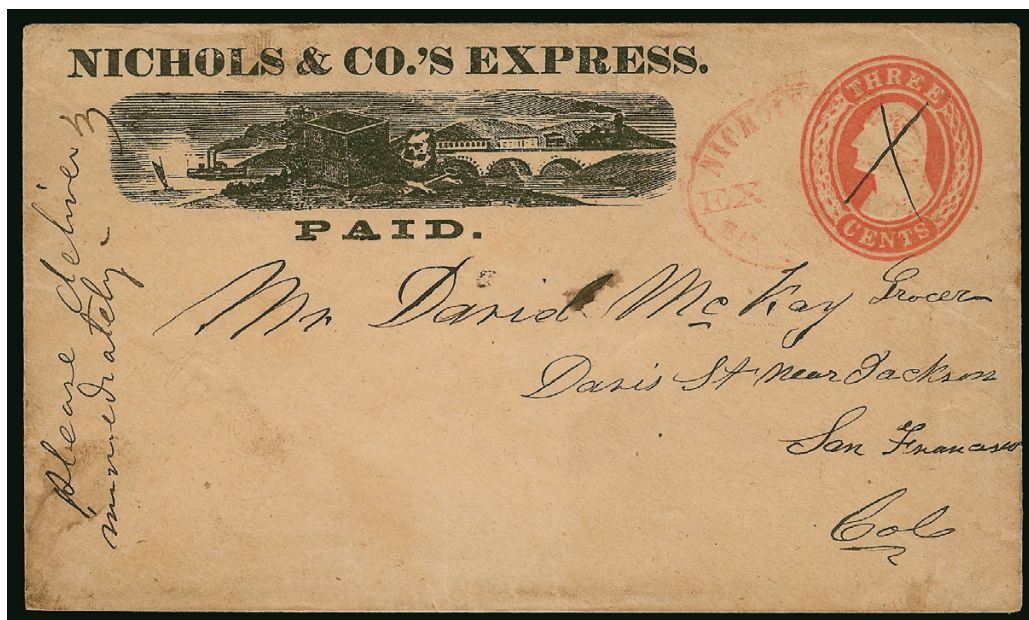 NICHOLS & CO.'S EXPRESS.
PAID.
NICHOLS
EX
THREE
CENTS
Please deliver
immediately
Mr. David McKay Grocer
Davis St near Jackson
San Francisco
Cal